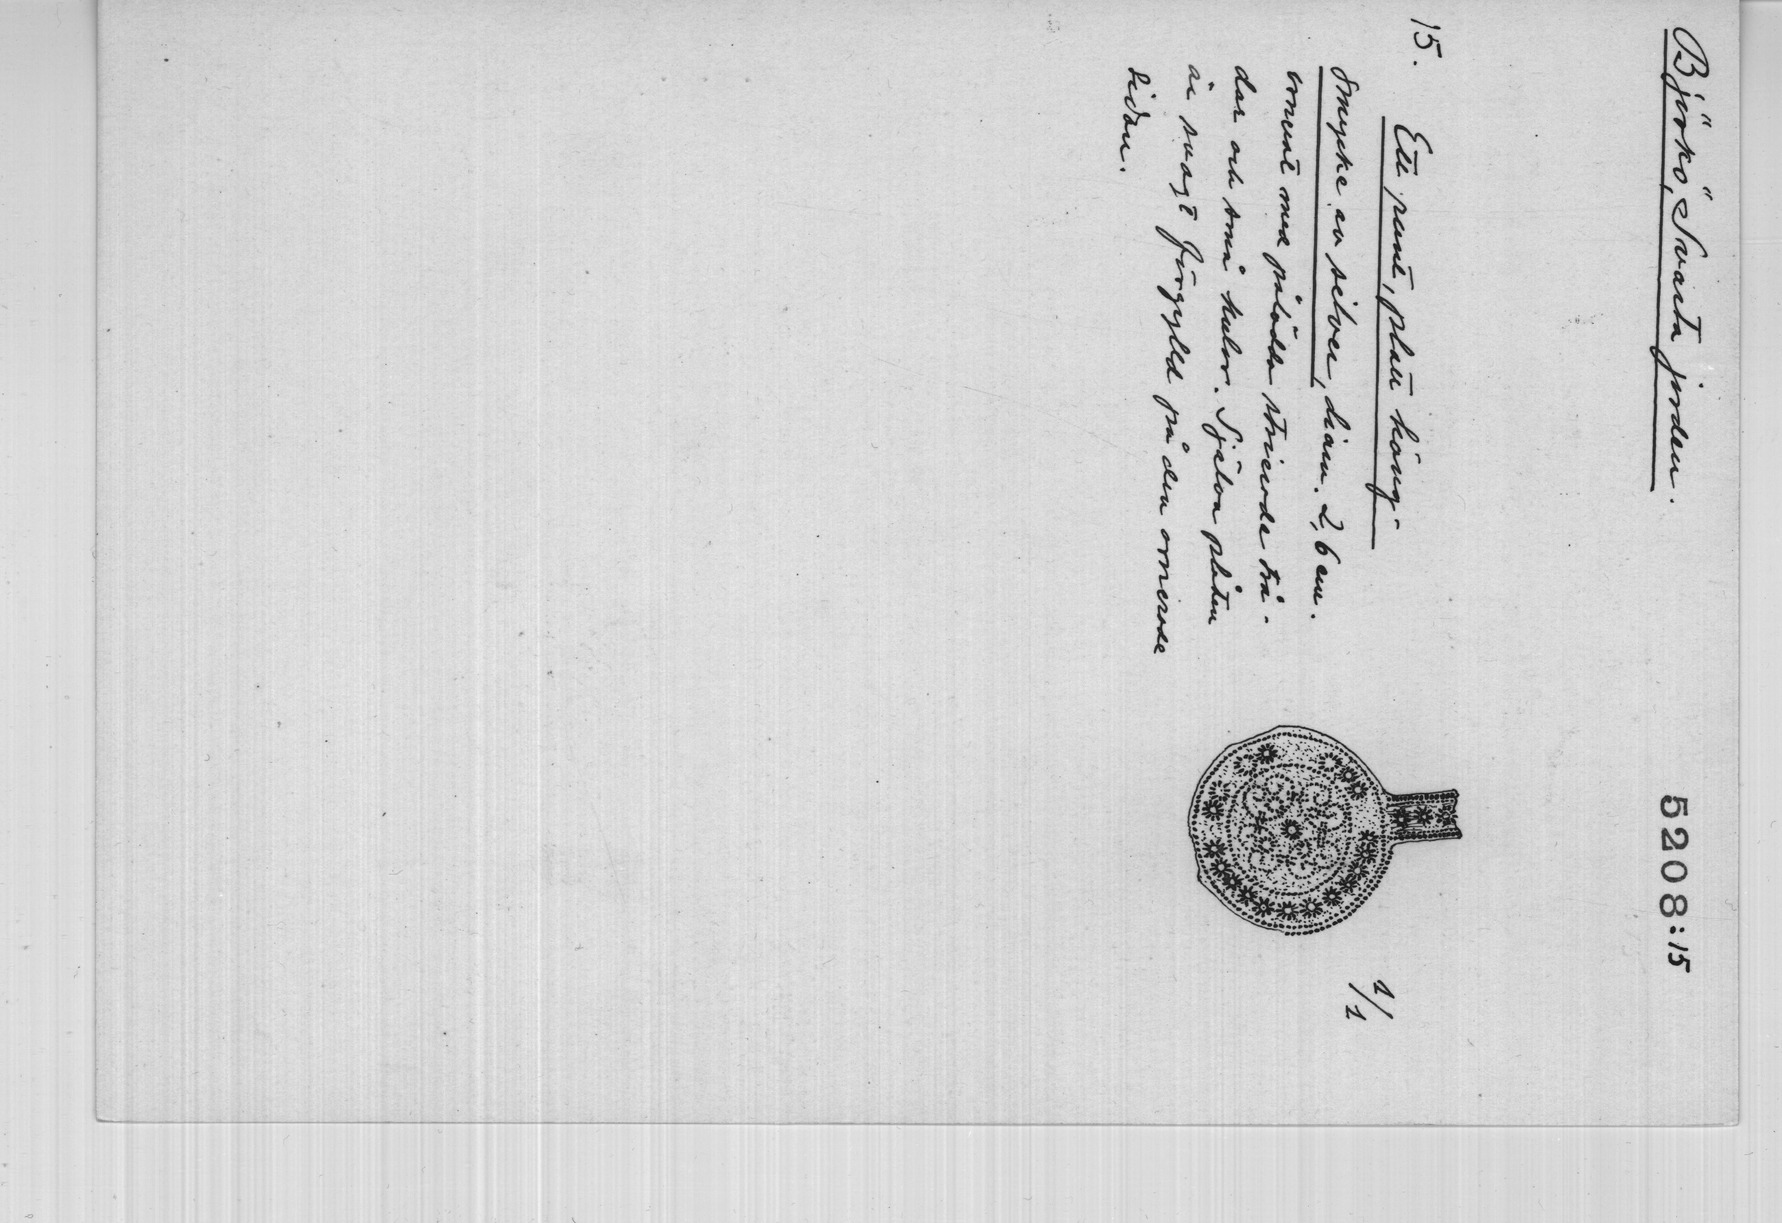 Björkö, Svarta jorden.
5208:15
15. Ett runt, platt häng-
smycke av silver, diam. 2,6 cm.
ornerat med pålödda strierade trå-
dar och små kulor. Själva plåten
är svagt förgylld på den ornerade
sidan.
1/1